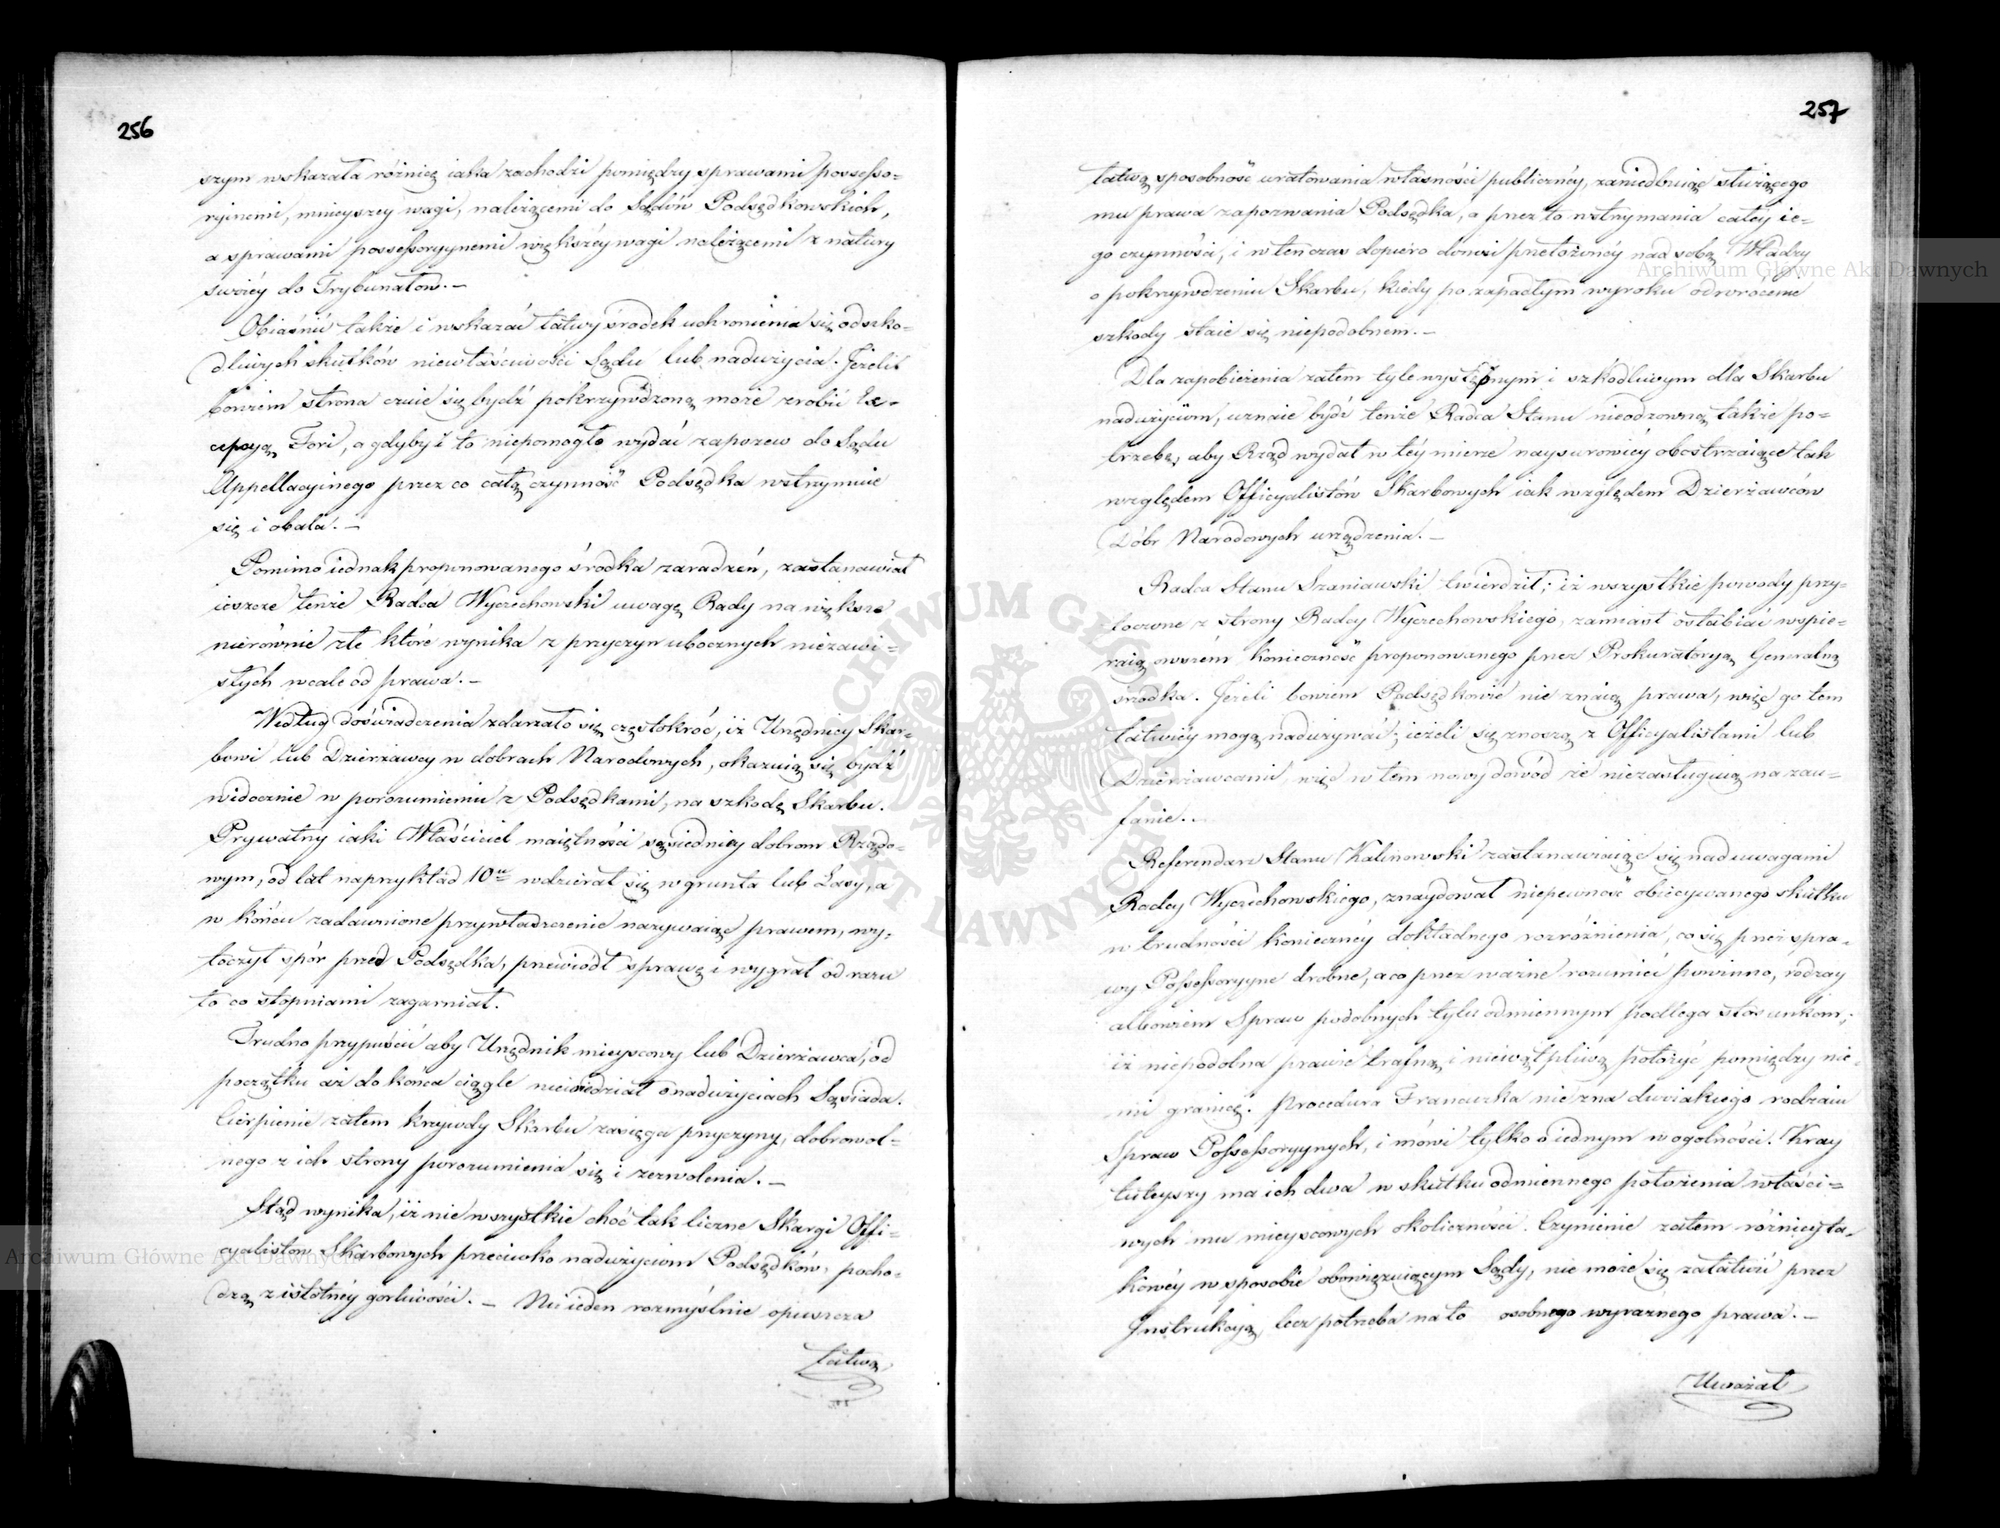 256
szym wskazała różnicę iaka zachodzi pomiędzy sprawami possesso-
ryinemi, mnieyszey wagi, należącemi do Sądów Podsędkowskich,
a sprawami possessoryynemi większéy wagi należącemi z natury
swoiéy do Trybunałów. –
Obiaśnić także i wskazać łatwy środek uchronienia się od szko-
dliwych skutków niewłaściwości Sądu lub nadużycia. Jeżeli
bowiem strona czuie się bydź pokrzywdzoną może zrobić Ex-
cepcyą Fori, a gdyby i to niepomogło wydać zapozew do Sądu
Appellacyinego przez co całą czynność Podsędka wstrzymuie
się i obala. –
Pomimo iednak proponowanego środka zaradzeń, zastanawiał
ieszcze tenże Radca Wyczechowski uwagę Rady na większe
nierównie złe które wynika z przyczyn ubocznych niezawi-
słych wcale od prawa. –
Według doświadczenia zdarzało się częstokroć, iż Urzędnicy Skar-
bowi lub Dzierżawcy w dobrach Narodowych, okazuią się bydź
widocznie w porozumieniu z Podsędkami, na szkodę Skarbu.
Prywatny iaki Właściciel maiętności sąsiedniey dobrom Rządo-
wym, od lat naprzykład 10u wdzierał się w grunta lub Lasy, a
w końcu zadawnione przywłaszczenie nazywaiąc prawem, wy-
toczył spór przed Podsędka, przewiódł sprawę i wygrał od razu
to co stopniami zagarniał.
Trudno przypuścić aby Urzędnik mieyscowy lub Dzierżawca, od
początku aż do końca ciągle niewiedział o nadużyciach Sąsiada.
Cierpienie zatem krzywdy Skarbu zasięga przyczyny, dobrowol-
nego z ich strony porozumienia się i zezwolenia. –
Stąd wynika, iż nie wszystkie choć tak liczne Skargi Offi-
cyalistów Skarbowych przeciwko nadużyciom Podsędków, pocho-
dzą z istotnéy gorliwości. – Nie ieden rozmyślnie opuszcza
łatwą
257
łatwą sposobność uratowania własności publicznéy, zaniedbuiąc służącego
mu prawa zapozwania Podsędka, a przez to wstrzymania całey ie-
go czynności, i w tenczas dopiero donosi przełożonéy nad sobą Władzy
o pokrzywdzeniu Skarbu, kiedy po zapadłym wyroku odwrócenie
szkody staie się niepodobnem. –
Dla zapobieżenia zatem tyle występnym i szkodliwym dla Skarbu
nadużyciom, uznaie bydź tenże Radca Stanu nieodzowną także po-
trzebę, aby Rząd wydał w téy mierze naysurowiéy obostrzaiące tak
względem Officyalistów Skarbowych iak względem Dzierżawców
Dóbr Narodowych urządzenia. –
Radca Stanu Szaniawski twierdził; iż wszystkie powody przy-
toczone z strony Radcy Wyczechowskiego, zamiast osłabiać wspie-
raią owszem konieczność proponowanego przez Prokuratoryą Generalną
środka. Jeżeli bowiem Podsędkowie nie znaią prawa, więc go tem
łatwiéy mogą nadużywać; ieżeli się znoszą z Officyalistami lub
Dzierżawcami, więc w tem nowy dowód że niezasługuią na zau-
fanie. –
Referendarz Stanu Kalinowski zastanawiaiąc się nad uwagami
Radcy Wyczechowskiego, znaydował niepewność obiecywanego skutku
w trudności koniecznéy dokładnego rozróżnienia, co się przez spra-
wy Possessoryyne drobne, a co przez ważne rozumieć powinno, rodzay
albowiem Spraw podobnych tylu odmiennym podlega stosunkom;
iż niepodobna prawie trafną i niewątpliwą położyć pomiędzy nie-
mi granicę. Procedura Francuzka nie zna dwoiakiego rodzaiu
Spraw Possessoryynych, i mówi tylko o iednym w ogólności. Kray
tuteyszy ma ich dwa w skutku odmiennego położenia właści-
wych mu mieyscowych okoliczności. Czynienie zatem różnicy ta-
kowéy w sposobie obowięzuiącym Sądy, nie może się załatwić przez
Instrukcyą, lecz potrzeba na to osobnego wyraznego prawa. –
Uważał
Archiwum Główne Akt Dawnych
Archiwum Główne Akt Dawnych
ARCHIWUM GŁÓWNE AKT DAWNYCH